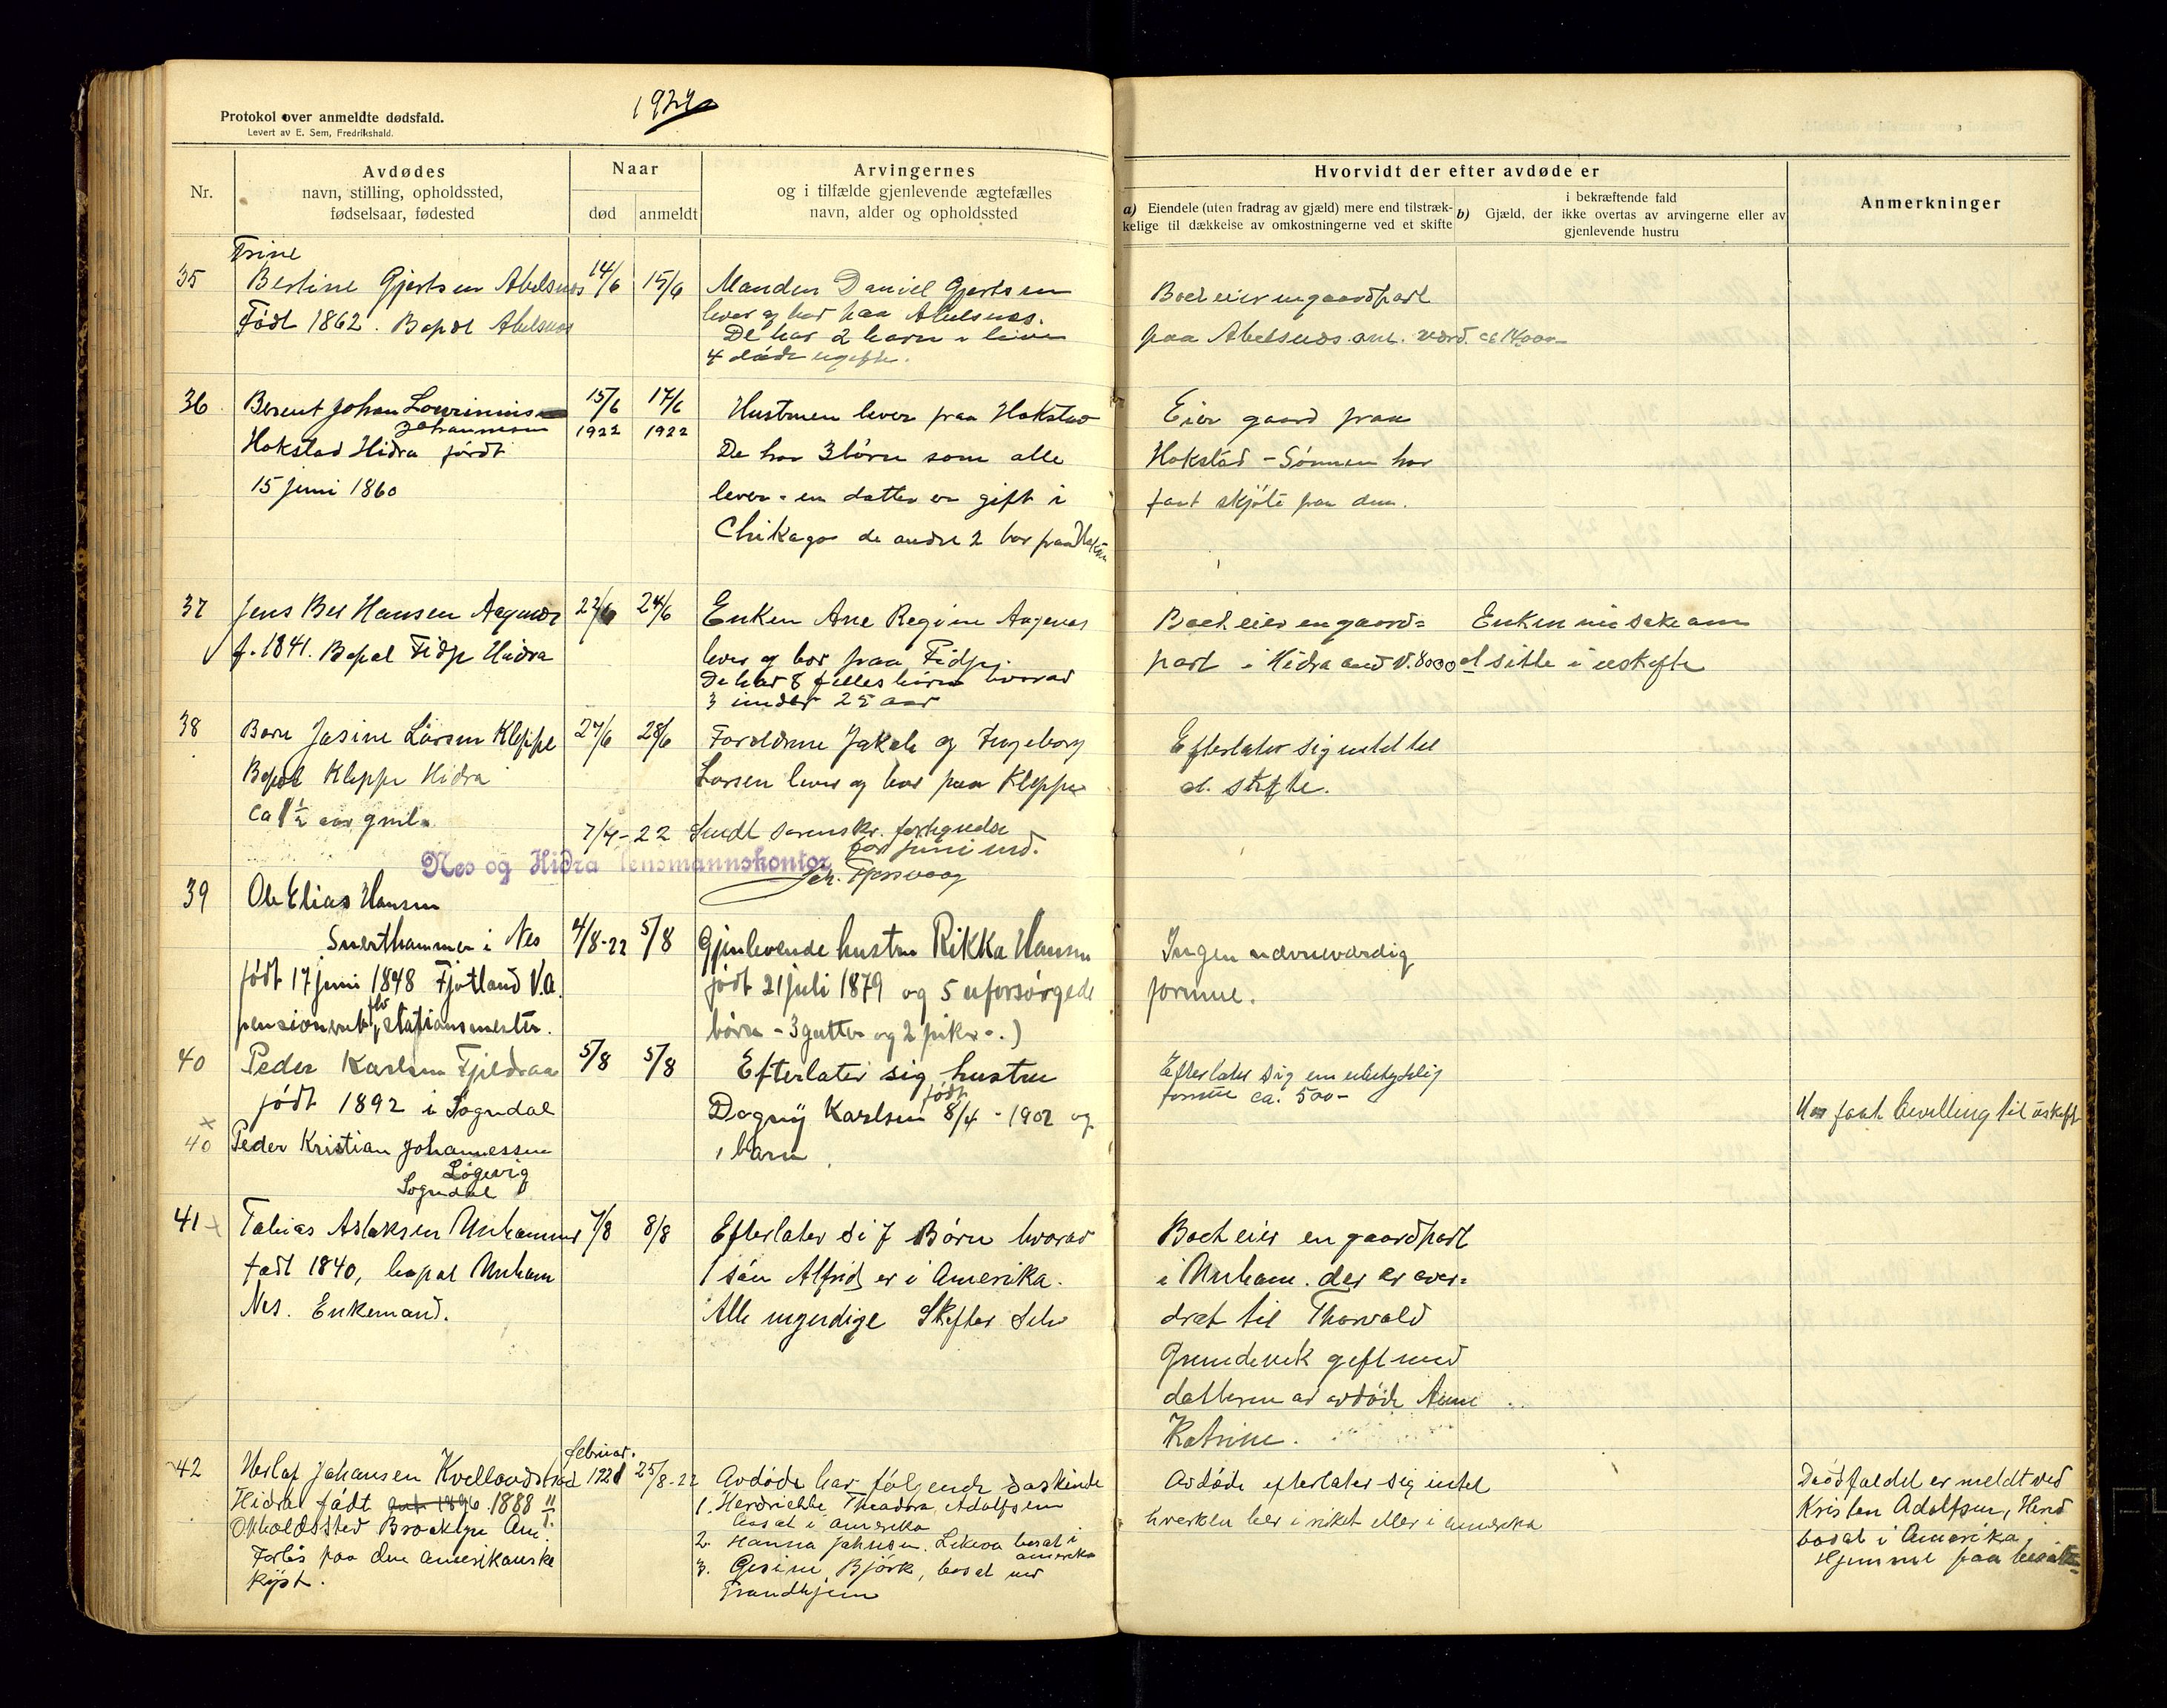 1922
Protokol over anmeldte dødsfald.
Levert av E. Sem, Fredrikshald.
Nr.
Avdødes
navn, stilling, opholdssted,
fødselsaar, fødested
Naar
død
anmeldt
Arvingernes
og i tilfælde gjenlevende ægtefælles
navn, alder og opholdssted
Hvorvidt der efter avdøde er
a) Eiendele (uten fradrag av gjæld) mere end tilstræk-
kelige til dækkelse av omkostningerne ved et skifte
i bekræftende fald
b) Gjæld, der ikke overtas av arvingerne eller av
gjenlevende hustru
Anmerkninger
Trine
35 Bertine Gjertsen Abelsnes 14/6 15/6
Født 1862. Bopæl Abelsnes
Manden Daniel Gjertsen
lever og bor paa Abelsnes.
De har 2 barn i live
4 døde ugifte.
Boet eier en gaardpart
paa Abelsnes anl. værd. ca 14000-
36 Berent Johan Lourinius 15/6 17/6
Johannesen 1922 1922
Hokstad Hidra født
15 juni 1860
Hustruen lever paa Hokstad
De har 3 børn som alle
lever - en datter er gift i
Chikago de andre 2 bor paa Hokstad
Eier gaard paa
Hokstad - Sønnen har
faat skjøte paa den.
37 Jens Ber Hansen 22/6 24/6
f. 1841. Bopæl Fidje Hidra
Enken Ane Regine
lever og bor paa Fidje.
De har 8 fælles børn hvorav
3 under 25 aar
Boet eier en gaard=
part i Hidra V. 8000
Enken vil søke om
at sitte i uskifte
38 Barn Jasine Larsen Kleppe 27/6 28/6
Bopæl Kleppe Hidra
ca 1½ aar gml.
Forældrene Jakob og Ingeborg
Larsen lever og bor paa Kleppe
Efterlater sig intet til
at skifte.
7/7-22 Sendt sorenskr. fortegnelse
for juni md.
Nes og Hidra lensmannskontor
39 Ole Elias Hansen
Snerthammer i Nes 4/8-22 5/8
født 17 juni 1848 Fjotland V.A.
pensionert fhv. stationsmester.
Gjenlevende hustru Rikka Hansen
født 21 juli 1879 og 5 uforsørgede
børn - 3 gutter og 2 piker -.)
Ingen nævneværdig
formue.
40 Peder Karlsen 5/8 5/8
født 1892 i Sogndal
Efterlater sig hustru
født
Dagny Karlsen 8/4 - 1902 og
1 barn
Efterlater sig en ubetydelig
formue ca. 500-
Har faat bevilling til uskifte
x
40 Peder Kristian Johannessen
Løgevig
Sogndal
41 x Tobias Aslaksen 7/8 8/8
født 1840, bopæl
Nes. Enkemand.
Efterlater si 7 Børn hvorav
1 søn Alfred er i Amerika.
Alle myndige Skifter Selv
Boet eier en gaardpart
i der er over=
drat til Thorvald
gift med
datteren av avdøde Anne
Katrine.
42 Johansen Kvellandstrand februar. 1921 25/8-22
Hidra født 1896 1888 11/1
Opholdssted Brooklyn Am.
Forlis paa den amerikanske
Kyst.
Avdøde har følgende søskende
1. Theodora Adolfsen
bosat i amerika
2. Hanna Johnsen bosat i
amerika
3. Gesine Björk, bosat ved
Trondhjem
Avdøde efterlater sig intet
hverken her i riket eller i amerika
Dødsfaldet er meldt ved
Kristen Adolfsen,
bosat i Amerika,
Hjemme paa besøk